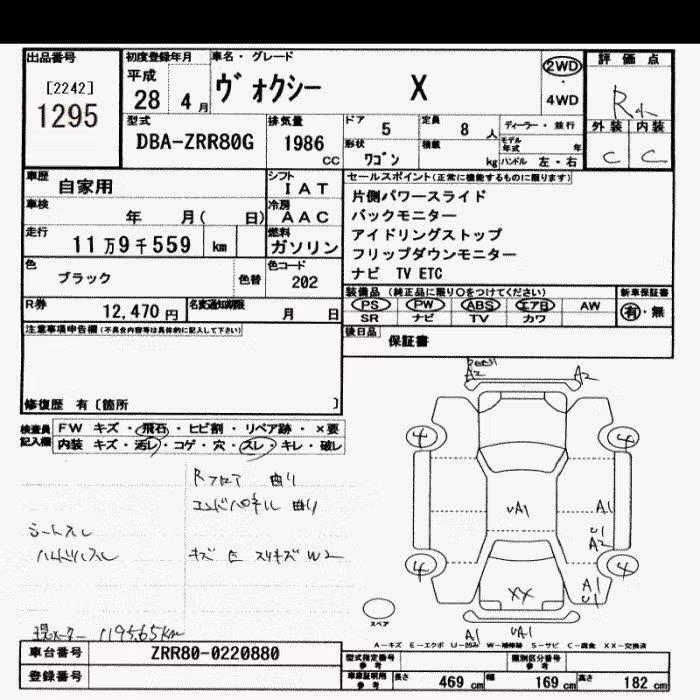 出品番号
[2242]
1295
初度登録年月
平成
28 4 月
車名・グレード
ヴォクシー X
2WD
4WD
評価点
R
外装 内装
C C
型式
DBA-ZRR80G
排気量
1986 cc
ドア
5
定員
8 人
形状
ワゴン
積載
kg
ディーラー・並行
モデル年式 年
ハンドル 左・右
車歴
自家用
シフト
I AT
車検
年 月( 日)
冷房
AAC
走行
11万9千559 km
燃料
ガソリン
色
ブラック
色替
色コード
202
R券
12,470 円
名変通知期限
月 日
セールスポイント(正常に機能するものに限ります)
片側パワースライド
バックモニター
アイドリングストップ
フリップダウンモニター
ナビ TV ETC
装備品(純正品に限り○をつけてください)
PS PW ABS エアB AW
SR ナビ TV カワ
新車保証書
有・無
後日品
保証書
注意事項申告欄(不具合内容等は具体的に記入して下さい)
修復歴 有〔箇所 〕
検査員記入欄
FW キズ・飛石・ヒビ割・リペア跡・×要
内装 キズ・汚レ・コゲ・穴・スレ・キレ・破レ
Rフロア 曲り
エンドパネル 曲り
シートスレ
ハンドルスレ
キズ E スリキズ W2
現メーター 119565km
A2 A2
4 4
UA1 A1
U1
A2
4 4
XX A1
U1
A1 UA1
スペア
A-キズ E-エクボ U-凹み W-補修跡 S-サビ C-腐食 XX-交換済
車台番号
ZRR80-0220880
登録番号
型式指定番号
参考
類別区分番号
参考
車庫証明用
参考
長さ 469 cm 幅 169 cm 高さ 182 cm